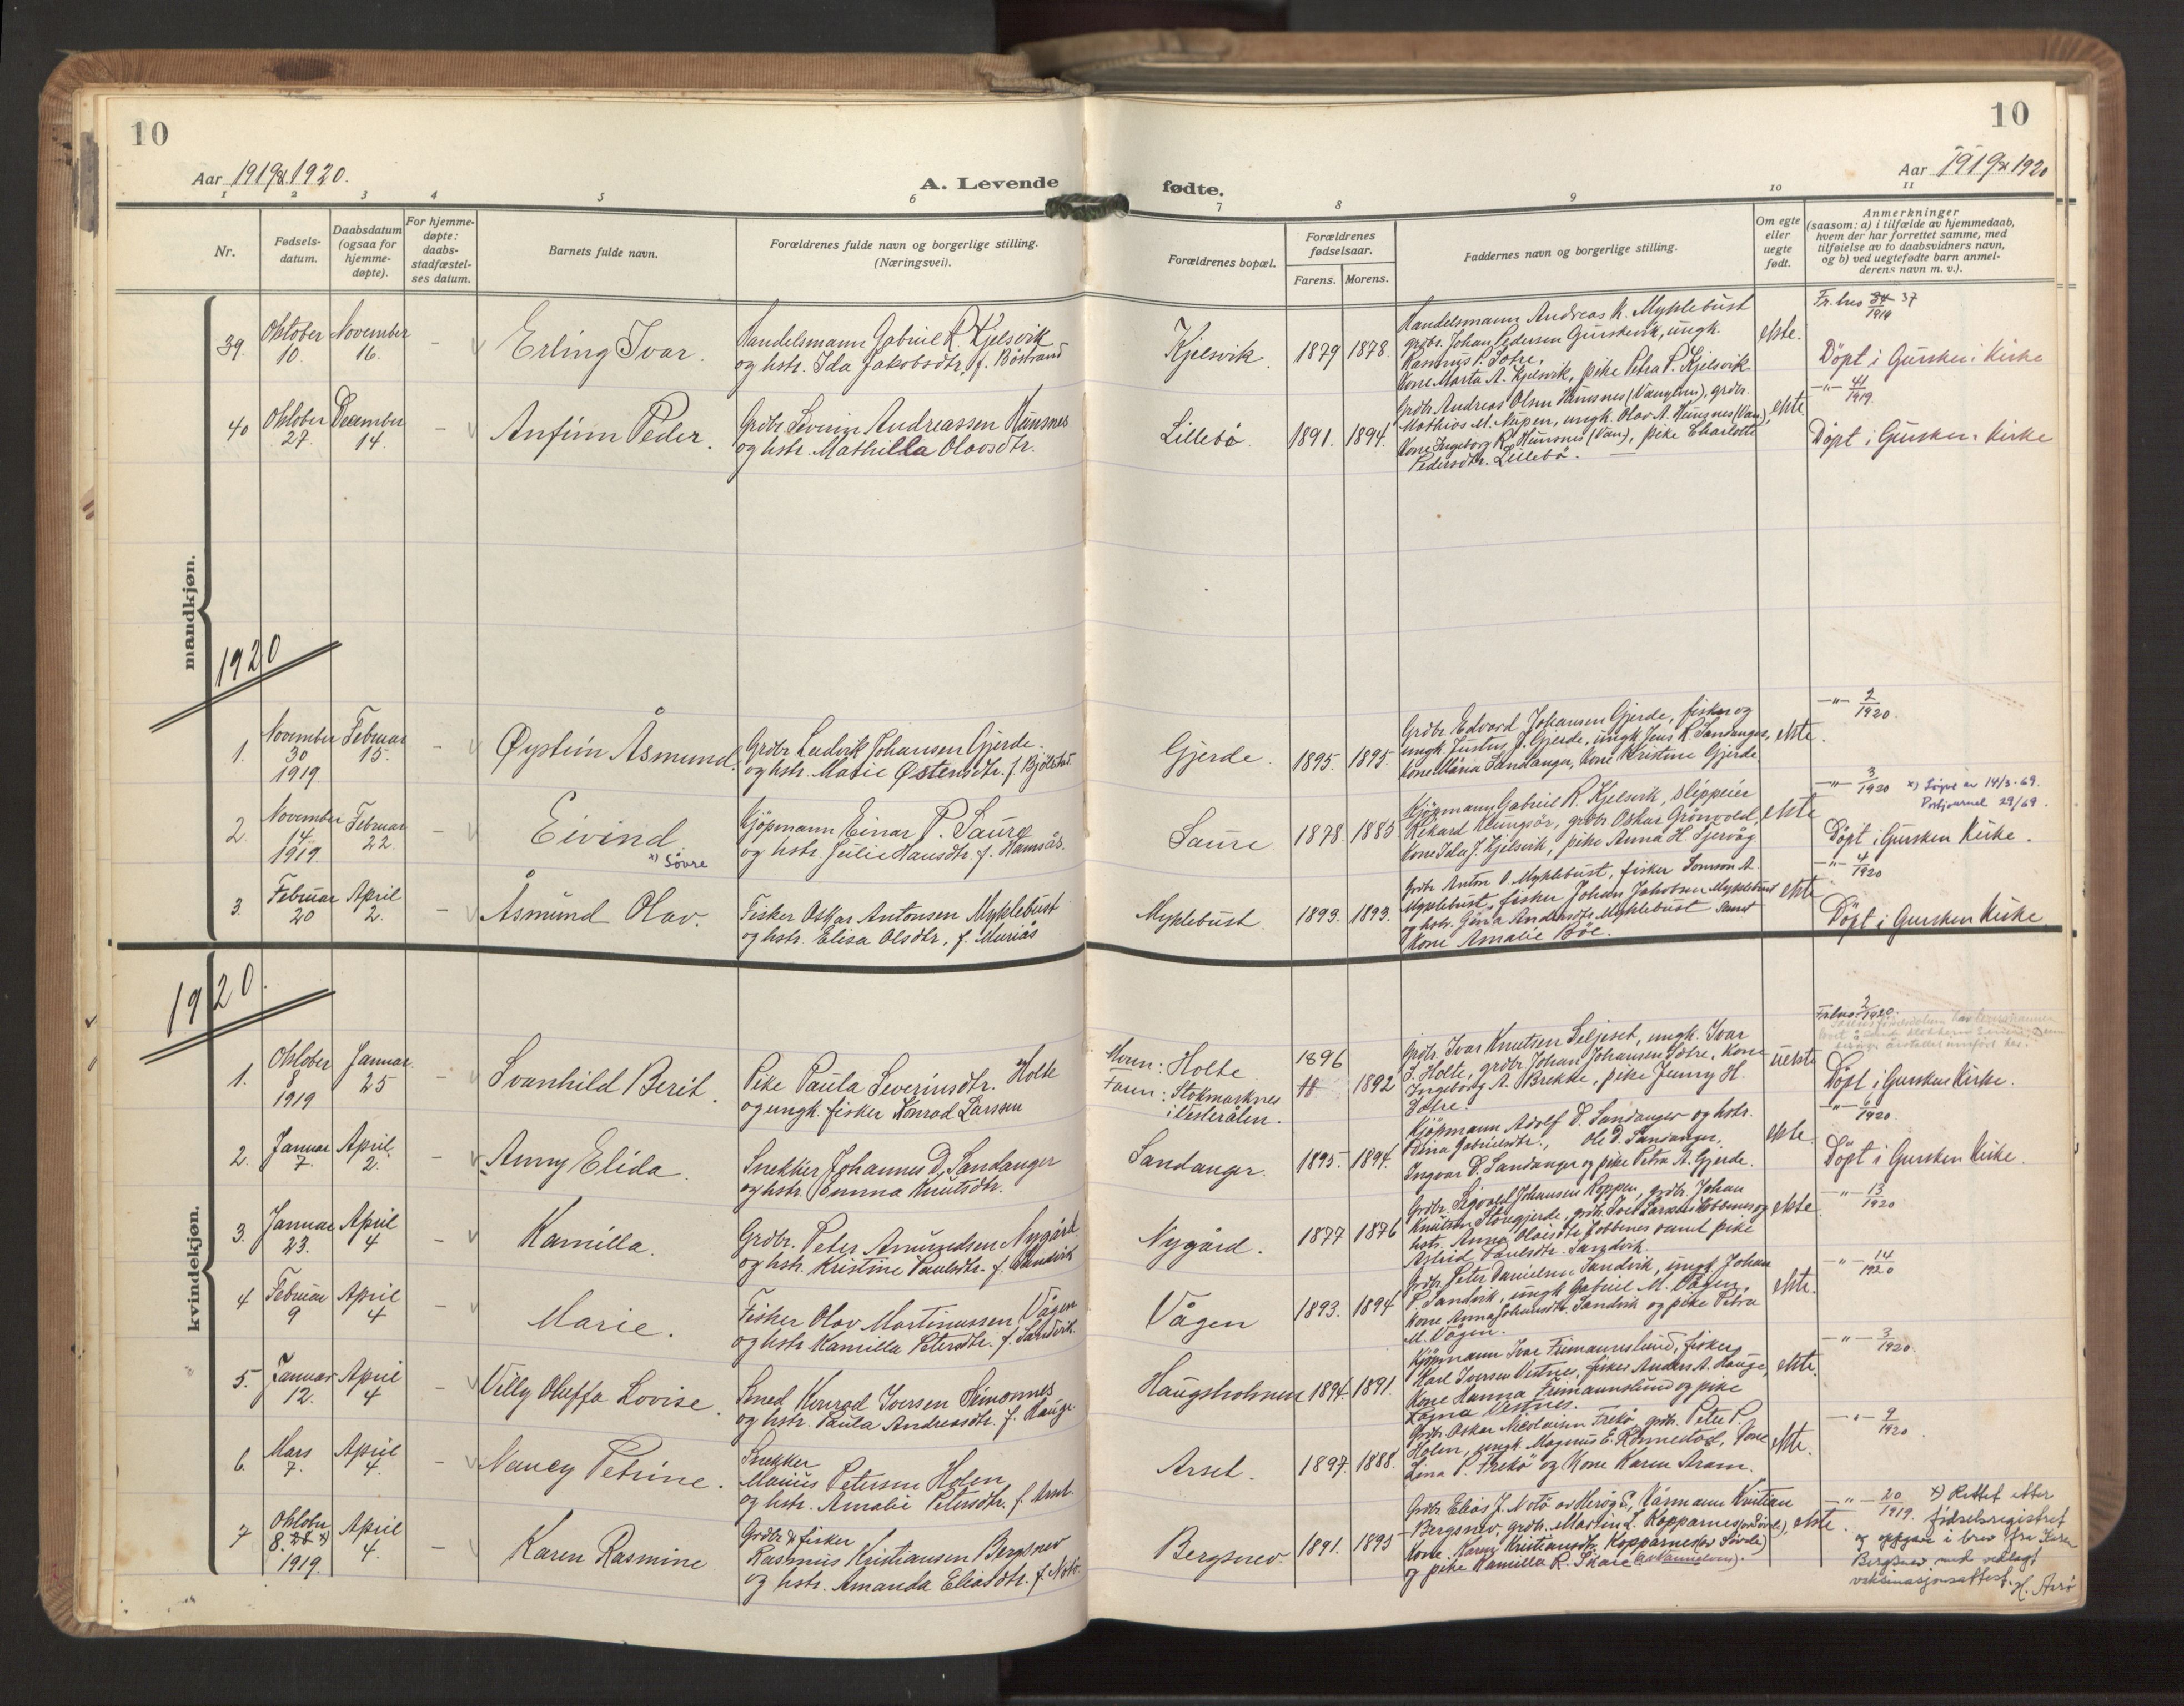 10
10
Aar 1919 & 1920.
A. Levende
fødte.
Aar 1919 & 1920
1
2
3
4
5
6
7
8
9
10
11
Nr.
Fødsels-
datum.
Daabsdatum
(ogsaa for
hjemme-
døpte).
For hjemme-
døpte:
daabs-
stadfæstel-
ses datum.
Barnets fulde navn.
Forældrenes fulde navn og borgerlige stilling.
(Næringsvei).
Forældrenes bopæl.
Forældrenes
fødselsaar.
Farens. Morens.
Faddernes navn og borgerlige stilling.
Om egte
eller
uegte
født.
Anmerkninger
(saasom: a) i tilfælde av hjemmedaab,
hvem der har forrettet samme, med
tilføielse av to daabsvidners navn,
og b) ved uegtefødte barn anmel-
derens navn m. v.).
mandkjøn.
39.
Oktober
10.
November
16.
-
Erling Ivar.
Handelsmann Gabriel R. Kjelsvik
og hstr. Ida Jakobsdtr. f. Böstrand
Kjelsvik.
1879
1878.
Handelsmann Andreas K. Myklebust
grdbr. Johan Pedersen Gurskevik, ungk.
Rasmus P. Sætre,
Kone Marta A. Kjelsvik, pike Petra P. Kjelsvik
ekte.
Fr. bno 34 37
1919
Döpt i Gursken Kirke
40
Oktober
27.
December
14.
-
Anfinn Peder.
Grdbr. Severin Andreassen Hunsnes
og hstr. Mathilla Olavsdtr.
Lillebö.
1891.
1894.
Grdbr. Andreas Olsen Hunsnes (Vanylven), grdbr.
Mathias M. Nupen, ungk. Olav A. Hunsnes (Van.),
Kone Ingeborg R. Hunsnes (Van), pike Charlotte
Pedersdtr. Lillebö.
ekte
-"- 41
1919.
Döpt i Gursken Kirke
1920
1.
November
30
1919.
Februar
15.
-
Øystein Åsmund.
Grdbr Ludvik Johansen Gjerde.
og hstr. Marie Østensdtr. f. Bjölstad
Gjerde.
1895.
1895.
Grdbr. Edvard Johansen Gjerde, fisker og
ungk. Justus J. Gjerde, ungk Jens R. Sandanger,
kone Maria Sandanger, kone Kristine Gjerde.
ekte.
-"- 2
1920.
2.
November
14.
1919
Februar
22.
-
Eivind
x) Søvre
Kjöpmann Einar P. Saure
og hstr. Julie Hansdtr. f. Hamsås.
Saure
1878.
1885
Kjöpmann Gabriel R. Kjelsvik, skipper
Rikard Klungsör, grdbr Oskar Grönvold,
Kone Ida J. Kjelsvik, pike Anna H. Sjervåg.
ekte
-"- 3
1920
14/3-69.
29/69.
Döpt i Gursken Kirke.
3.
Februar
20
April
2.
-
Åsmund Olav.
Fisker Oskar Antonsen Myklebust
og hstr. Elisa Olsdtr, f. Muriås
Myklebust.
1893.
1893.
Grdbr Anton O. Myklebust, fisker A.
Myklebust, fisker Johan Jakobsen Myklebust
og hstr. Gina Andersdtr Myklebust samt
Kone Amalie Böe.
ekte
-"- 4
1920
Döpt i Gursken Kirke
kvindekjøn.
1920.
1.
Oktober
8
1919
Januar
25
-
Svanhild Berit.
Pike Paula Severinsdtr. Holte
og ungk. fisker Konrad Larssen
Moren: Holte
Faren: Stokmarknes
i Vesterålen.
1896
1892
Grdbr. Ivar Knutsen Seljeset, ungk. Ivar
S. Holte, grdbr Johan Johansen Sætre, Kone
Ingeborg A. Brekke, pike Jenny H.
Sætre.
uekte
Fr. bno. 2
1920.
Döpt i Gursken Kirke.
2.
Januar
7.
April
2.
-
Anny Elida.
Snekker Johannes D. Sandanger
og hstr. Emma Knutsdtr.
Sandanger.
1895.
1894.
Kjöpmann Adolf D. Sandanger og hstr.
Dina Gabrielsdtr., Ole D. Sandanger,
Ingvar D. Sandanger og pike Petra A. Gjerde.
ekte
-"- 6
1920.
Döpt i Gursken Kirke.
3.
Januar
23.
April
4
-
Kamilla.
Grdbr. Peter Amundsen Nygård
og hstr. Kristine Paulsdtr. f. Sandvik
Nygård.
1877
1876
Grdbr. Sigvald Johansen Koppen, grdbr. Johan
Knutsen Storegjerde, grdbr. Iver Larsen Jobbenes og
hstr. Anna Olaisdtr Jobbenes samt pike
Astrid Paulsdtr. Sandvik.
ekte.
-"- 13
1920
4
Februar
9
April
4
-
Marie.
Fisker Olav Martinussen Vågen
og hstr Kamilla Petersdtr. f. Sandvik.
Vågen
1893.
1894
Grdbr. Peter Danielsen Sandvik, ungk Johan
P. Sandvik, ungk Gabriel M. Vågen,
Kone Anna Johansdtr. Sandvik og pike Petra
M. Vågen.
ekte.
-"- 14
1920
5.
Januar
12.
April
4
-
Villy Oluffa Lovise.
Smed Konrad Iversen Simonnes
og hstr. Paula Andreasdtr. f. Hauge
Haugsholmen
1894.
1891.
Kjöpmann Ivar Frimannslund, fisker
Karl Iversen Vestnes, fisker Anders A. Hauge,
Kone Hanna Frimannslund og pike
Ragna Vestnes.
ekte.
-"- 3
1920.
6.
Mars
7.
April
4.
-
Nancy Petrine.
Snekker
Marius Petersen Holen
og hstr. Amalie Petersdtr. f. Arset
Arset.
1897.
1888.
Grdbr Oskar Nicolaisen Frekö, grdbr. Peter P.
Holen, ungk. Magnus E. Rönnestad, Kone
Lina P. Frekö og Kone Karen Aram.
ekte.
-"- 9
1920
7
Oktober
8. 28 x)
1919.
April
4.
-
Karen Rasmine
Grdbr & fisker
Rasmus Kristiansen Bergsnev
og hstr. Amanda Eliasdtr. f. Notö.
Bergsnev.
1891.
1895
Grdbr Elias J. Notö av Heröy S., Vårmann Kristian
Bergsnev, grdbr. Martin L. Kopparnes (av Sövde),
Kone Karen Kristiansdtr Kopparnes (av Sövde)
og pike Kamilla R. Skare (av Vannelven).
ekte.
-"- 20
1919.
x) Rettet etter
fødselsregistret
og oppgave i brev fra
Bergsnev med vedlagt
vaksinasjonsattest.